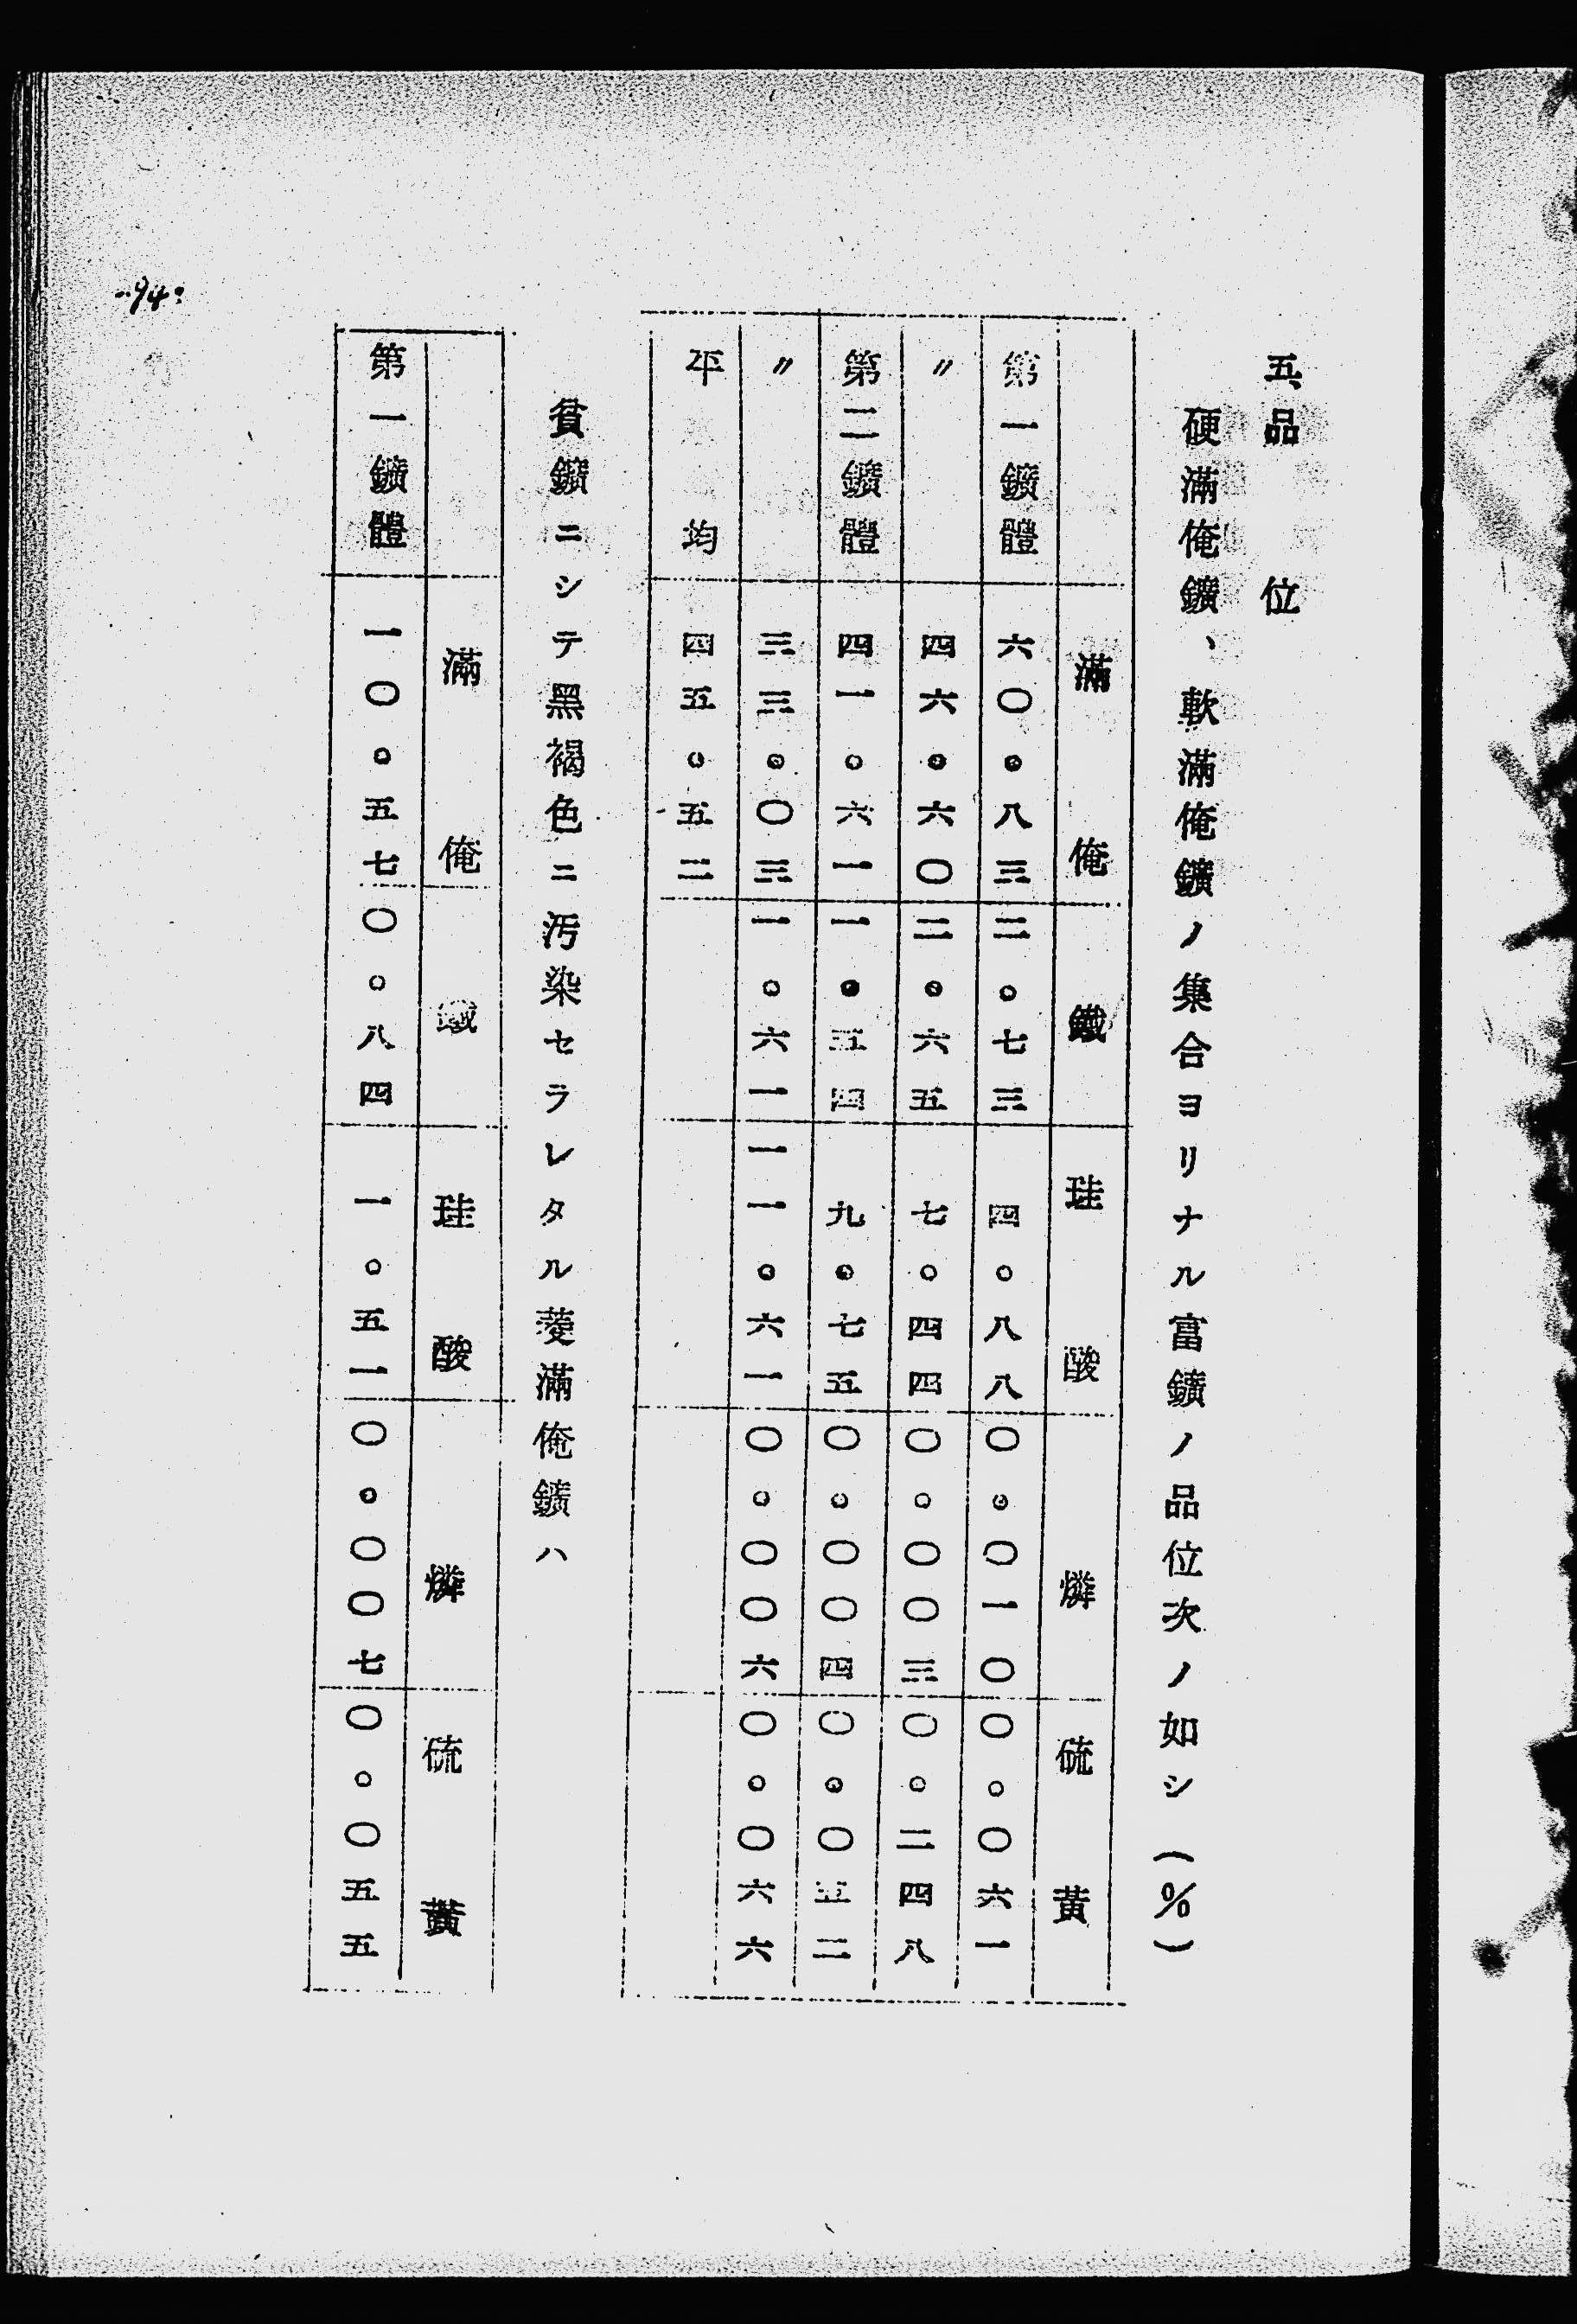 五、品位
硬滿俺鑛、軟滿俺鑛ノ集合ヨリナル富鑛ノ品位次ノ如シ(%)
滿俺 鐵 珪酸 燐 硫黃
第一鑛體 六〇。八三 二。七三 四。八八 〇。〇一〇 〇。〇六一
〃 四六。六〇 二。六五 七。四四 〇。〇〇三 〇。二四八
第二鑛體 四一。六一 一。五四 九。七五 〇。〇〇四 〇。〇五二
〃 三三。〇三 一。六一 一一。六一 〇。〇〇六 〇。〇六六
平均 四五。五二
貧鑛ニシテ黑褐色ニ汚染セラレタル菱滿俺鑛ハ
滿俺 鐵 珪酸 燐 硫黃
第一鑛體 一〇。五七 〇。八四 一。五一 〇。〇〇七 〇。〇五五
94